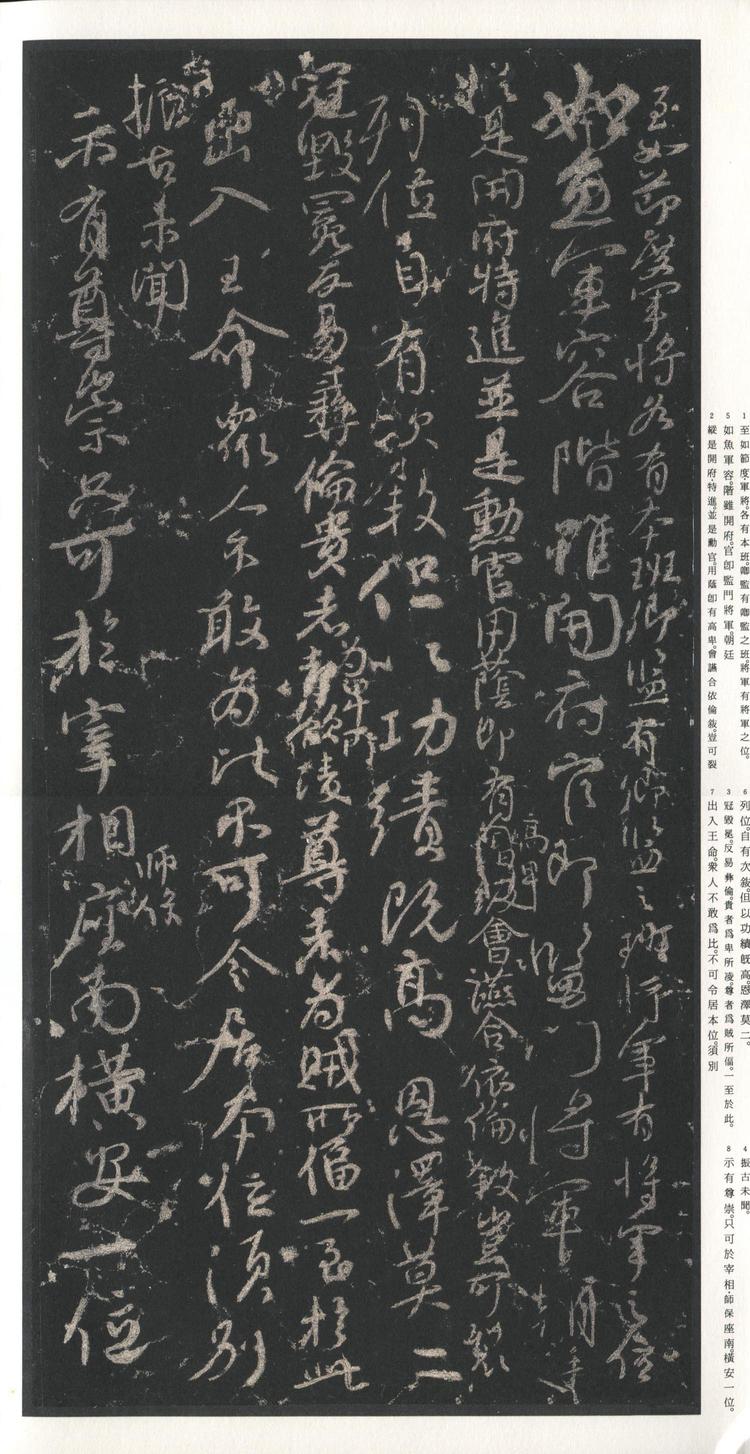 至如節度軍將各有本班卿監有卿監之班將軍有將軍之位
如魚軍容階雖開府官即監門將軍朝廷
縱是開府特進並是勳官用蔭即有高卑會讌合依倫敘豈可裂
列位自有次敘但以功績既高恩澤莫二
冠毀冕反易彝倫貴者為卑所凌尊者為賊所偪一至於此
出入王命眾人不敢為比不可令居本位須別
振古未聞
示有尊崇只可於宰相師保座南橫安一位
1 至如節度・軍將。各有本班。卿監有卿監之班。將軍有將軍之位。
5 如魚軍容。階雖開府。官卽監門將軍。朝廷
2 縱是開府・特進。並是勳官。用蔭卽有高卑。會讌合依倫敍。豈可裂
6 列位。自有次敍。但以功績旣高。恩澤莫二。
3 冠毀冕。反易彝倫。貴者爲卑所凌。尊者爲賊所偪。一至於此。
7 出入王命。衆人不敢爲比。不可令居本位。須別
4 振古未聞。
8 示有尊崇。只可於宰相・師保座南。橫安一位。